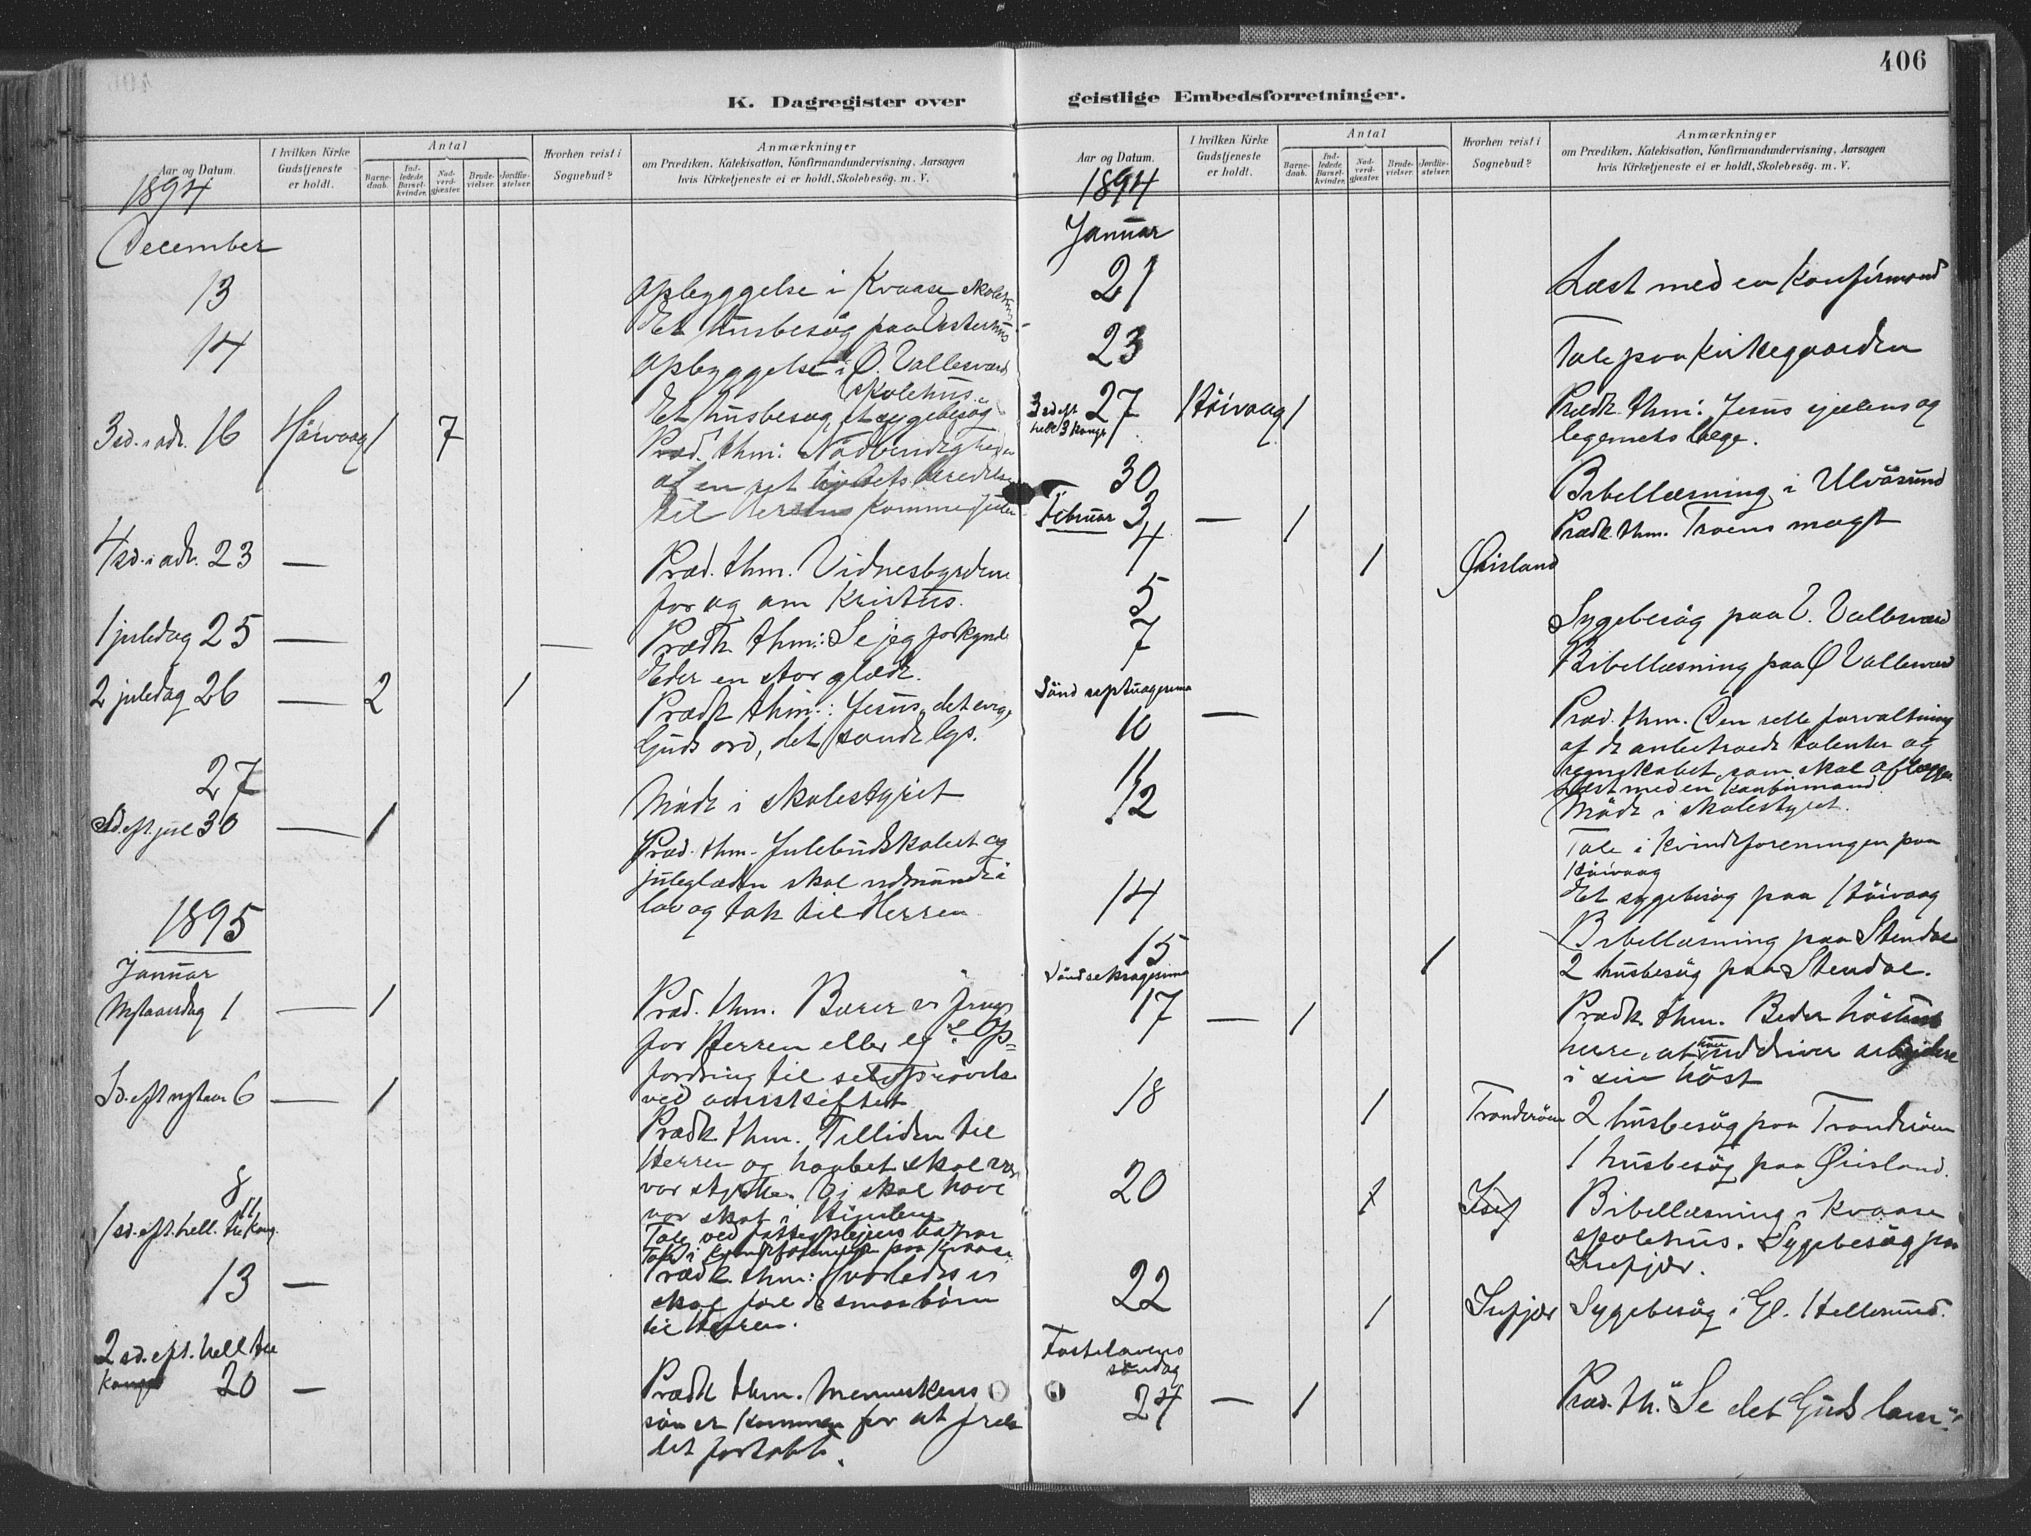 406
K. Dagregister over
geistlige Embedsforretninger.
Aar og Datum.
I hvilken Kirke
Gudstjeneste
er holdt.
Antal
Barne-
daab.
Ind-
ledede
Barsel-
kvinder.
Nad-
verd-
gjæster.
Brude-
vielser.
Jordfæ-
stelser.
Hvorhen reist i
Sognebud?
Anmærkninger
om Prædiken, Katekisation, Konfirmandundervisning, Aarsagen
hvis Kirketjeneste ei er holdt, Skolebesøg. m. V.
1894
December
13 Opbyggelse i Kvaase skolehus
Et husbesøg paa Vesterhus
14 Opbyggelse i Ø. Vallesværd
skolehus.
Et husbesøg, et sygebesøg
3 sd. i adv. 16 Høivaag 1 7 Præd. thm: Nødvendigheden
af en ret
til Herrens komme
4 sd. i adv. 23 — Præd. thm. Vidnesbyrdene
for og om Kristus.
1 juledag 25 — — Prædk thm: Se jeg forkynder
Eder en stor glæde.
2 juledag 26 — 2 1 Prædk thm: Jesus, det evige
Guds ord, det sande lys.
27 Møde i skolestyret
Sd. eft. jul 30 — 1 Præd. thm. Julebudskabet og
juleglæden skal udmunde i
lov og tak til Herren
1895
Januar
Nytaarsdag 1 — 1 Præd. thm. Bærer vi frugt
for Herren eller ej? Op-
fordring til selvprøvelse
ved aarsskiftet
Sd. eft nytaar 6 — 1 Prædk thm. Tilliden til
Herren og haabet skal være
vor styrke. Vi skal have
vor skat i Himlen
8 Tale ved fattigplejens
11 Tale i kvindeforeningen paa Kvaase
1 sd. eft. hell. tre kong.
13 — Prædk thm: Hvorledes vi
skal føre de smaa børn
til Herren.
2 sd. eft. hell tre
konger 20 — Prædk thm. Menneskens
søn er kommen for at frelse
det fortabte.
Aar og Datum.
I hvilken Kirke
Gudstjeneste
er holdt.
Antal
Barne-
daab.
Ind-
ledede
Barsel-
kvinder.
Nad-
verd-
gjæster.
Brude-
vielser.
Jordfæ-
stelser.
Hvorhen reist i
Sognebud?
Anmærkninger
om Prædiken, Katekisation, Konfirmandundervisning, Aarsagen
hvis Kirketjeneste ei er holdt, Skolebesøg. m. V.
1894
Januar
21 Læst med en Konfirmand
23 Tale paa Kirkegaarden
3 sd. eft
hell 3 kong. 27 Høivaag 1 Prædk. thm: Jesus sjælens og
legemets læge.
30 Bibellæsning i Ulvøsund
Februar 3 — 1 Prædk. thm. Troens magt
4 1 Ørisland
5 Sygebesøg paa V. Vallesværd
7 Bibellæsning paa Ø Vallesværd
Sønd septuagesima
10 — Præd. thm. Den rette forvaltning
af de anbetroede talenter og
regnskabet, som skal aflægges
11 Læst med en konfirmand
12 Møde i skolestyret.
Tale i Kvindeforeningen paa
Høivaag
14 Et sygebesøg paa Høivaag
15 1 Bibellæsning paa Stendal
2 husbesøg paa Stendal.
Sønd seksagesima
17 — 1 Prædk thm. Beder høstens
herre, at han uddriver arbejdere
i sin høst
18 1 Tronderøen 2 husbesøg paa Tronderøen
1 husbesøg paa Ørisland.
20 1 Isef Bibellæsning i Kvaase
skolehus. Sygebesøg paa
Isefjær.
22 1 Isefjær Sygebesøg i Gl. Hellesund.
Fastelavens
søndag
24 — 1 Præd. th. "Se det Guds lam"